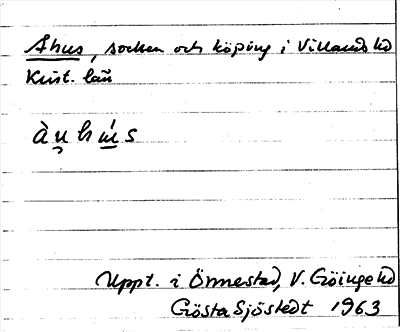 Åhus, socken och köping i Villands hd
Krist. län
àu̯hú̱s
Uppt. i Önnestad, V. Göinge hd
Gösta Sjöstedt 1963